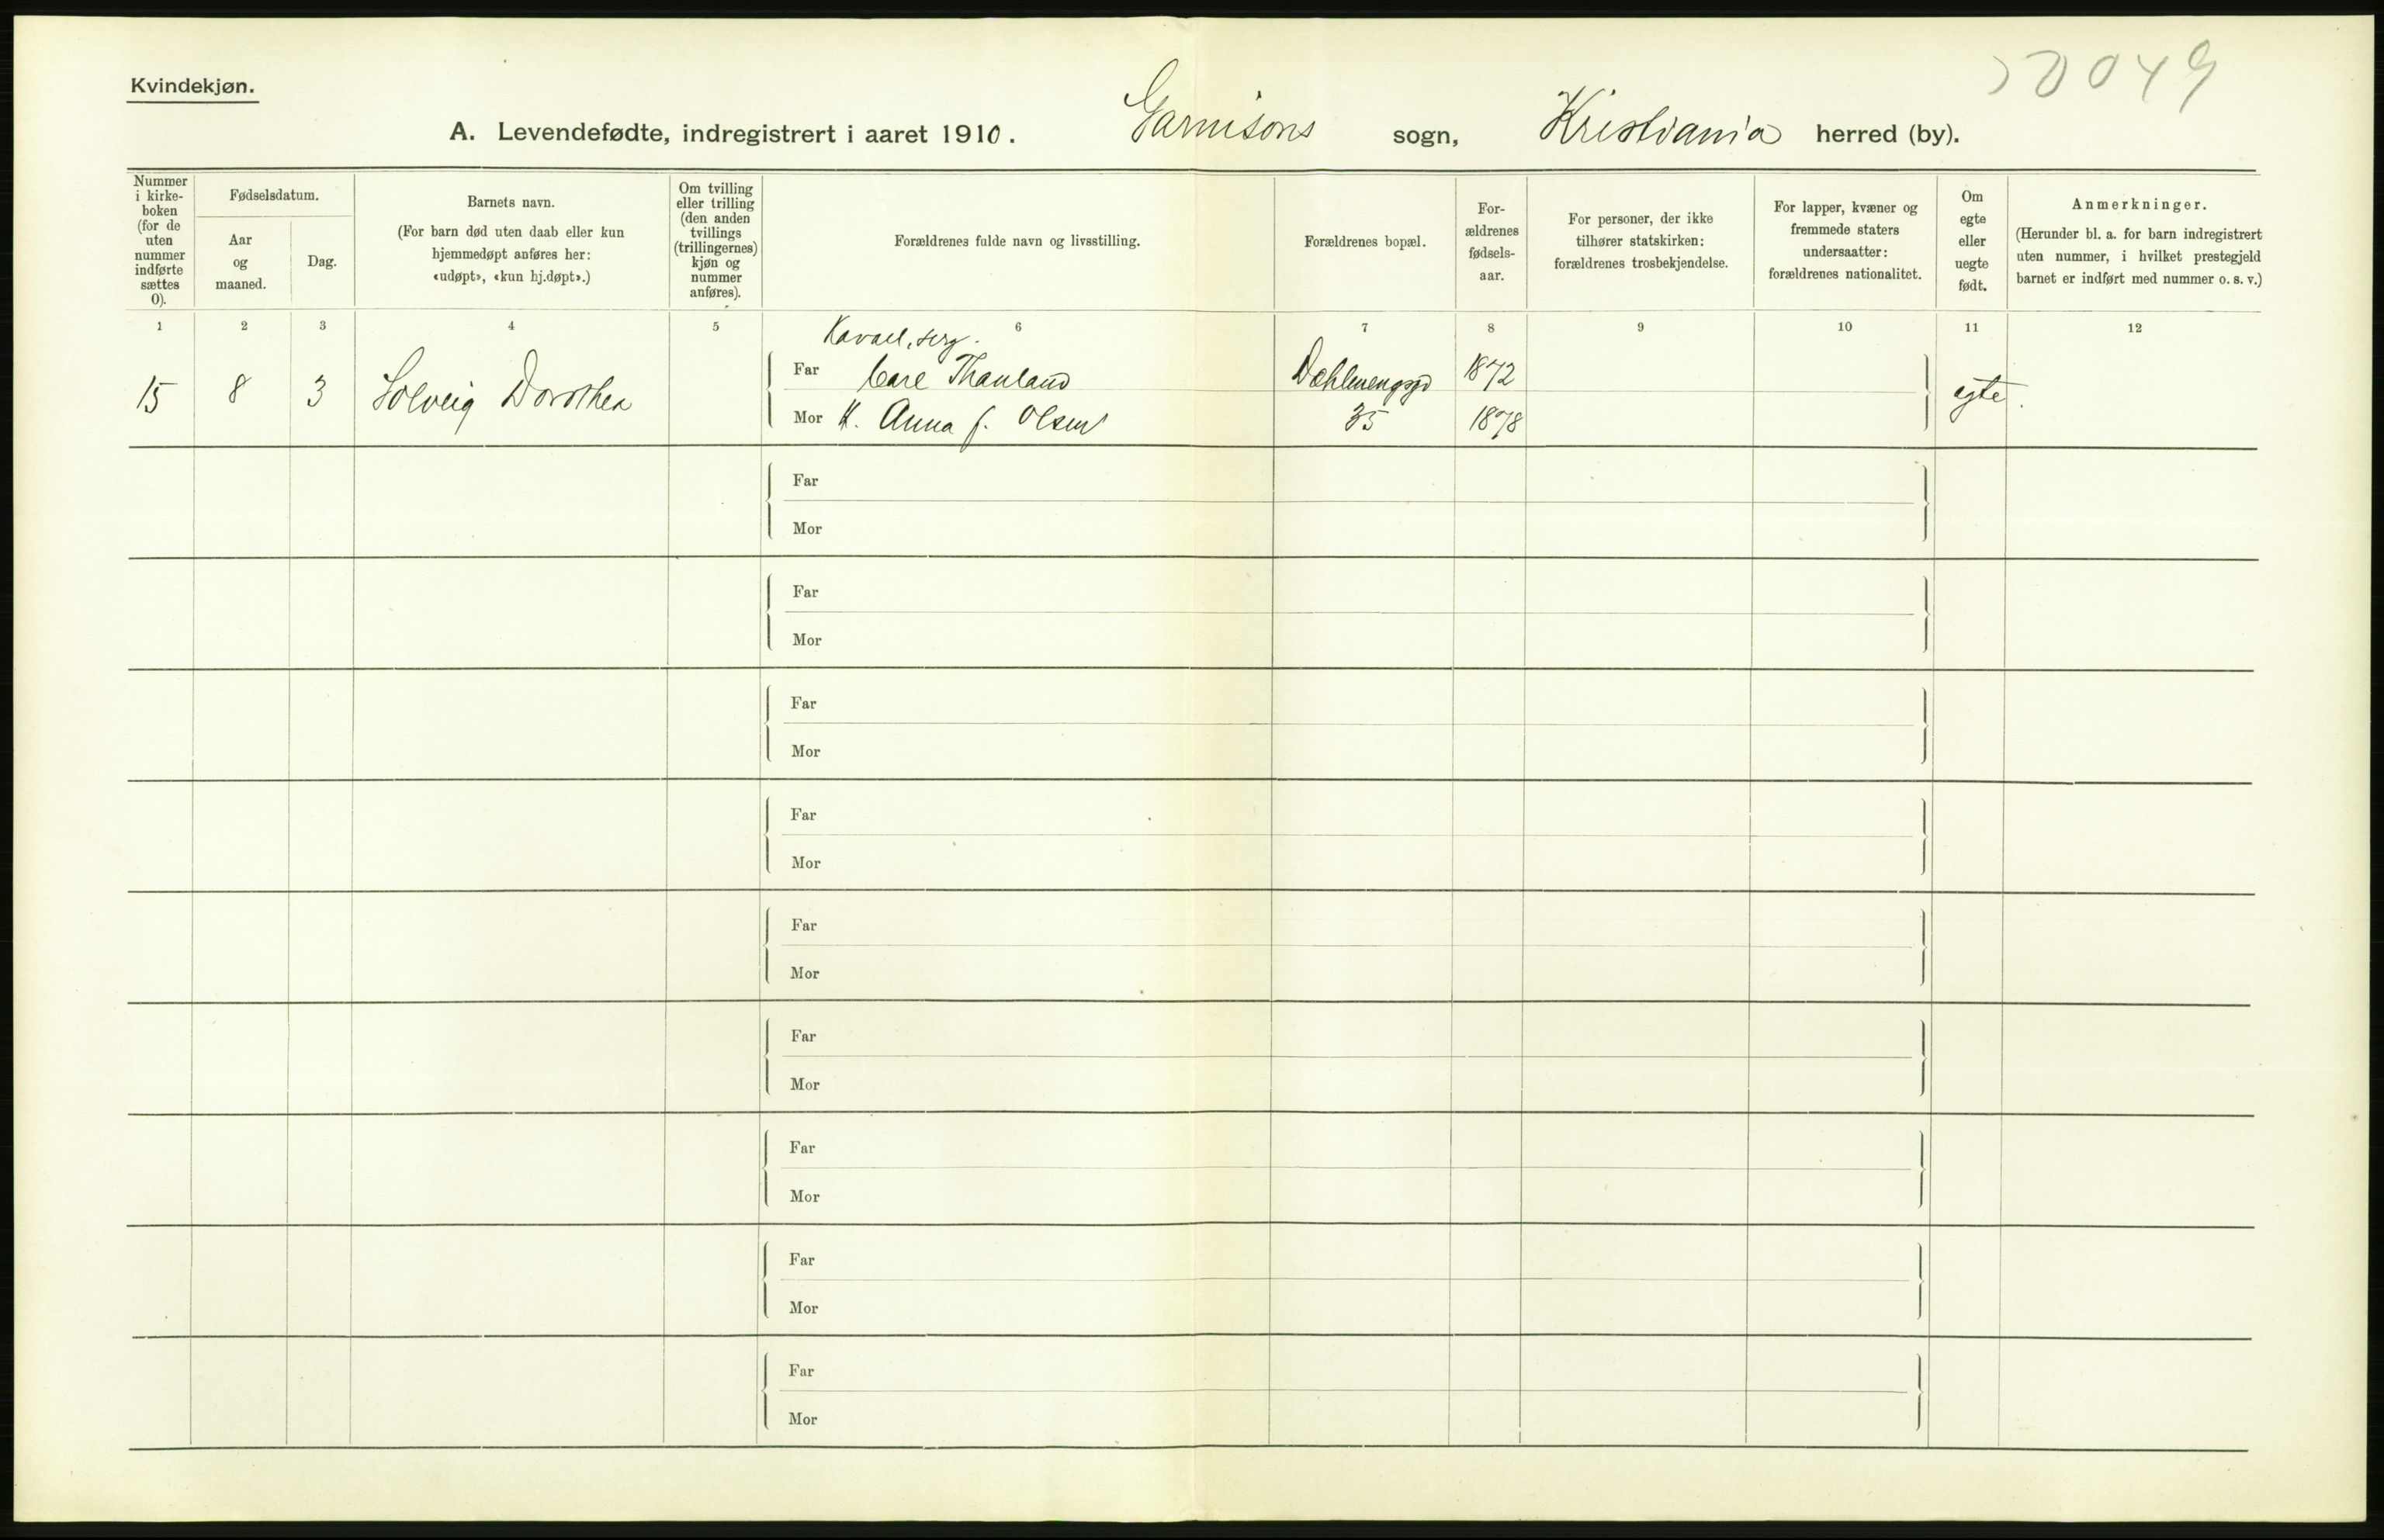 Kvindekjøn.
A. Levendefødte, indregistrert i aaret 1910. Garnisons sogn, Kristiania herred (by).
Nummer i kirke-boken (for de uten nummer indførte sættes 0).
Fødselsdatum.
Aar og maaned.
Dag.
Barnets navn.
(For barn død uten daab eller kun hjemmedøpt anføres her: «udøpt», «kun hj.døpt».)
Om tvilling eller trilling (den anden tvillings (trillingernes) kjøn og nummer anføres).
Forældrenes fulde navn og livsstilling.
Forældrenes bopæl.
For-ældrenes fødsels-aar.
For personer, der ikke tilhører statskirken: forældrenes trosbekjendelse.
For lapper, kvæner og fremmede staters undersaatter: forældrenes nationalitet.
Om egte eller uegte født.
Anmerkninger.
(Herunder bl. a. for barn indregistrert uten nummer, i hvilket prestegjeld barnet er indført med nummer o. s. v.)
1 2 3 4 5 6 7 8 9 10 11 12
Kavall. serg.
15 8 3 Solveig Dorothea Far Carl Thauland 1872 egte.
Mor H. Anna f. Olsen 35 1878
Far
Mor
Far
Mor
Far
Mor
Far
Mor
Far
Mor
Far
Mor
Far
Mor
Far
Mor
Far
Mor